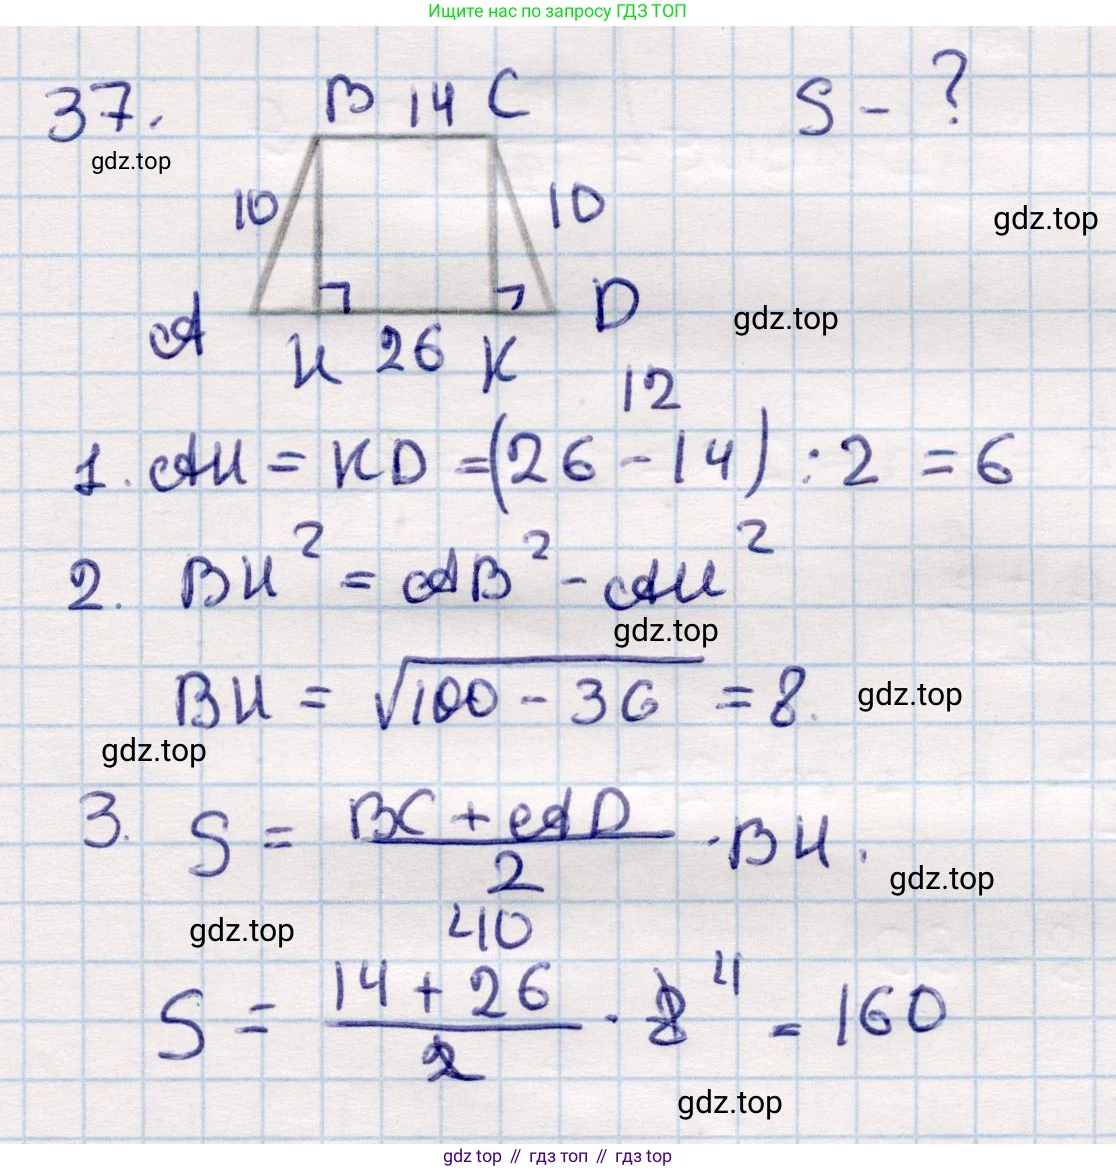 Ищите нас по запросу ГДЗ ТОП
37. B 14 C S - ?
gdz.top
10 10
gdz.top
A H 26 K D
gdz.top
12
1. AH = KD = (26 - 14) : 2 = 6
2. BH² = AB² - AH²
gdz.top
BH = √100 - 36 = 8.
gdz.top
gdz.top
3. S = BC + AD / 2 · BH.
gdz.top
gdz.top
40
S = 14 + 26 / 2 · 8 4 = 160
gdz.top
gdz top // гдз топ // гдз top